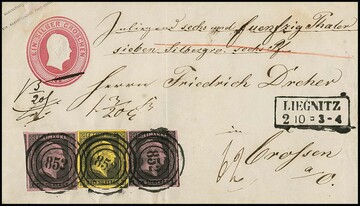 EIN SILBER GROSCHEN
Inliegend sechs und fuenfzig Thaler
sieben Silbergr. sechs Pf
Herrn Friedrich Dreher
LIEGNITZ
2 10 * 3-4
in
Crossen
a/O.
853 853 853